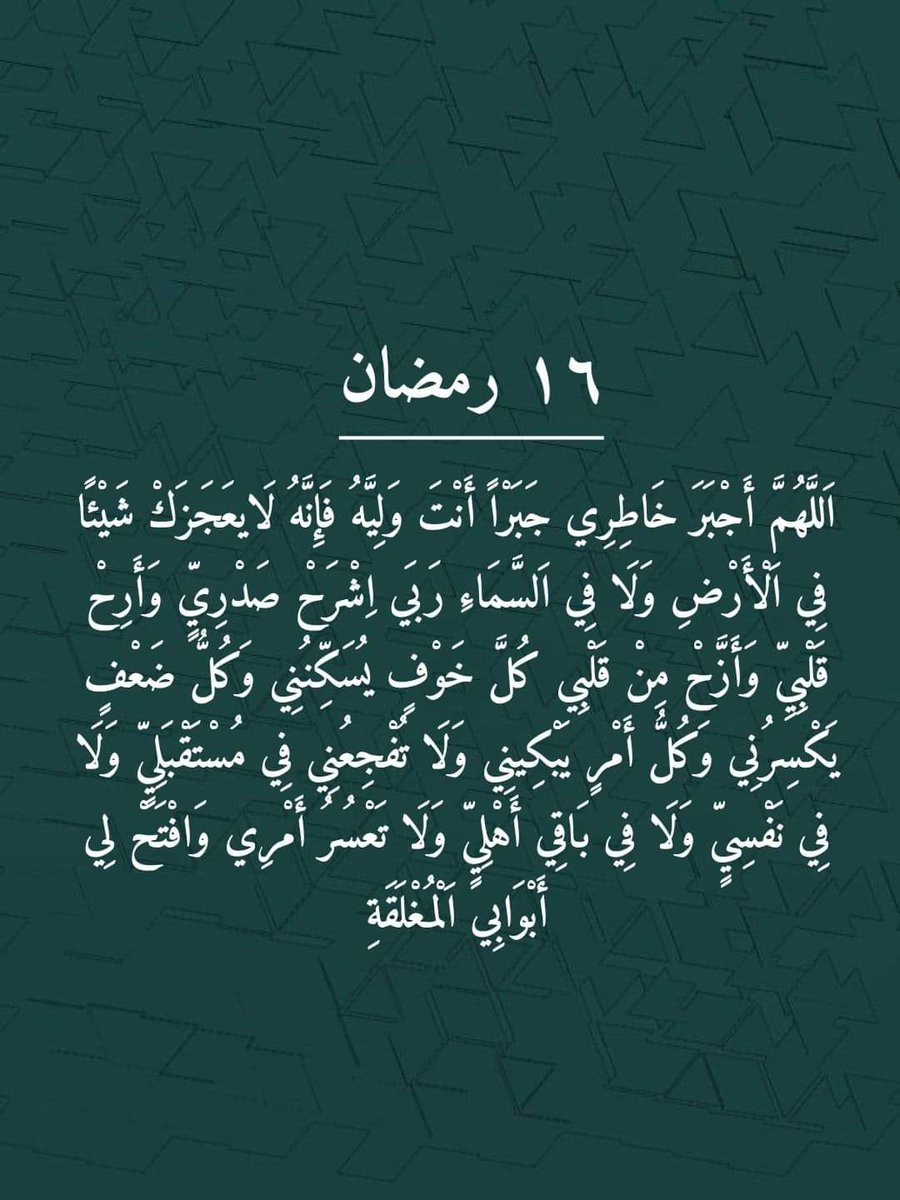 ١٦ رمضان
اَللَّهُمَّ أَجْبَرَ خَاطِرِي جَبَرْاً أَنْتَ وَلِيَّهُ فَإِنَّهُ لَايعَجَزكْ شَيْئًا
فِي اَلْأَرْضِ وَلَا فِي اَلسَّمَاءِ رَبَي اِشْرَحْ صَدْرِيٍّ وَأَرِحْ
قَلْبِيّ وَأَزَّحْ مِنْ قَلْبِي كُلَّ خَوْفٍ يُسَكِّنُنِي وَكُلُّ ضَعْفٍ
يَكْسِرُنِي وَكُلُّ أَمْرٍ يَبْكِينِي وَلَا تُفْجِعُنِي فِي مُسْتَقْبَلِيٍّ وَلَا
فِي نَفْسِيٍّ وَلَا فِي بَاقِي أَهْلِيٍّ وَلَا تَعْسُرُ أَمْرِي وَافْتَحْ لِي
أَبْوَابِي اَلْمُغْلَقَةِ